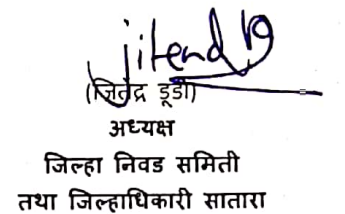 jitend
(जितेंद्र डूडी)
अध्यक्ष
जिल्हा निवड समिती
तथा जिल्हाधिकारी सातारा